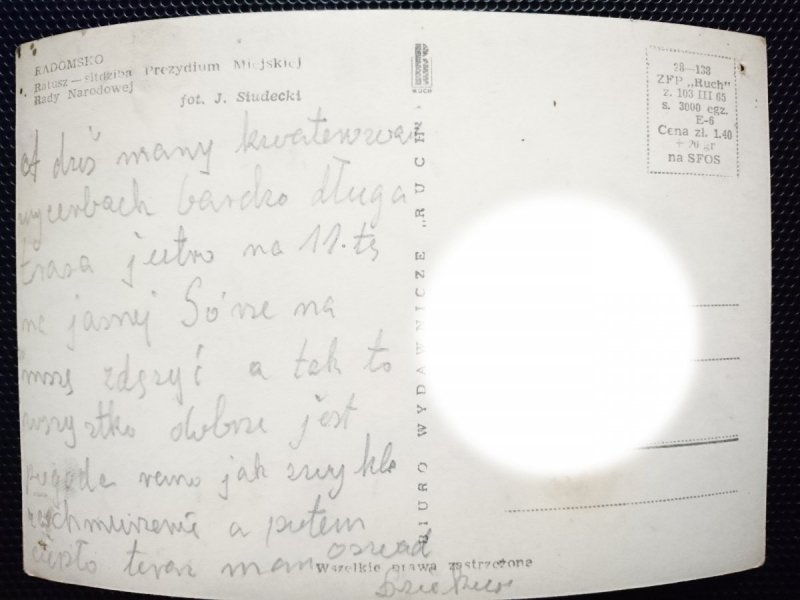 RADOMSKO
Ratusz — siedziba Prezydium Miejskiej
Rady Narodowej
fot. J. Siudecki
A dziś mamy
bardzo długa
trasa jutro na 11.tę
na jasnej Górze na
mszę zdążyć a tak to
wszystko dobrze jest
pogoda rano jak zwykle
zachmurzenie a potem
ciepło teraz mam obiad
BIURO WYDAWNICZE „RUCH”
RUCH
28—138
ZFP „Ruch”
z. 103 III 65
s. 3000 egz.
E-6
Cena zł. 1.40
+ 20 gr
na SFOS
Wszelkie prawa zastrzeżone